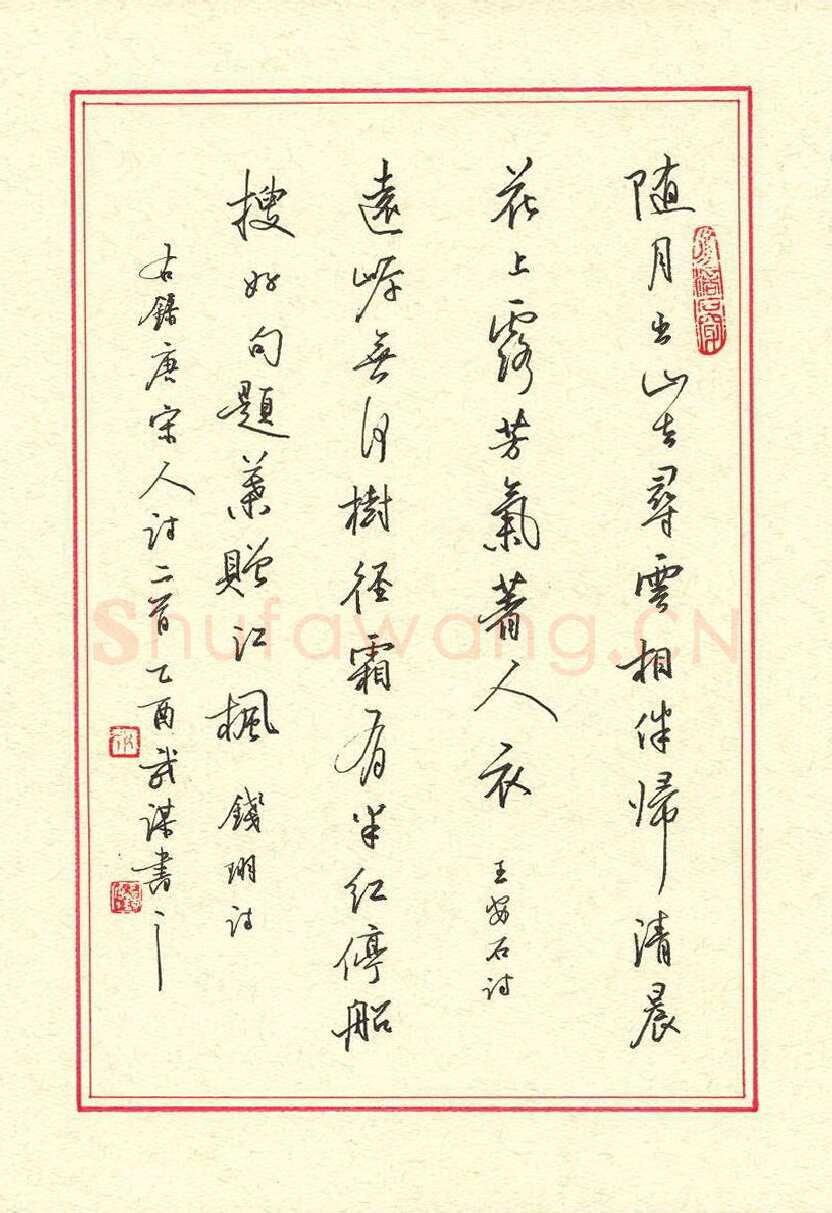 随月出山去尋雲相伴歸清晨
花上露芳氣著人衣 王安石詩
遠岸無行樹徑霜有半紅停船
搜好句題葉贈江楓 錢珝詩
右錄唐宋人詩二首乙酉武謀書之
Shufawang.CN